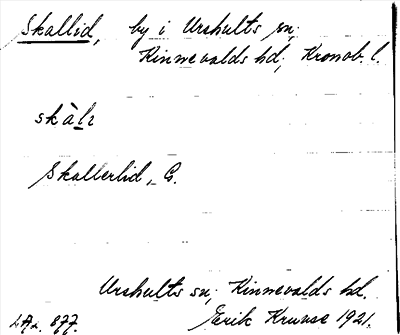 Skallid, by i Urshults sn;
Kinnevalds hd; Kronob. l.
skàlı
Skallerlid, G.
Urshults sn; Kinnevalds hd.
LAu. 877. Erik Kruuse 1921.